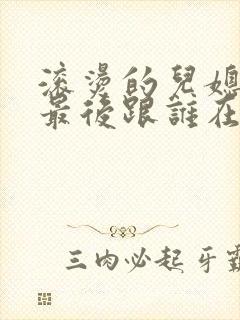 滚燙的兒媳
最後跟誰在
三肉必起牙霸